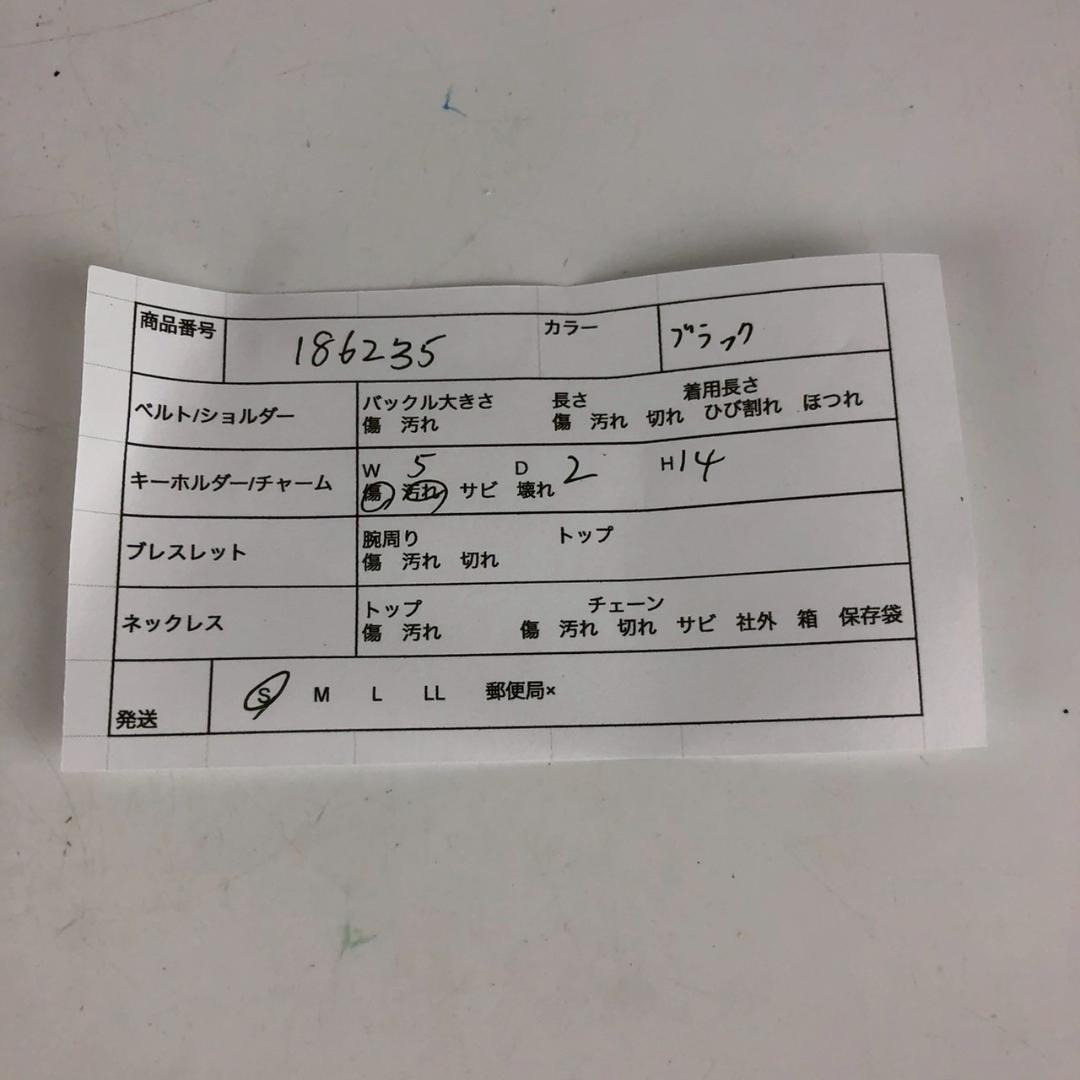 商品番号 186235 カラー ブラック
ベルト/ショルダー バックル大きさ 長さ 着用長さ
傷 汚れ 傷 汚れ 切れ ひび割れ ほつれ
キーホルダー/チャーム W 5 D 2 H 14
傷 汚れ サビ 壊れ
ブレスレット 腕周り トップ
傷 汚れ 切れ
ネックレス トップ チェーン
傷 汚れ 傷 汚れ 切れ サビ 社外 箱 保存袋
発送 S M L LL 郵便局×